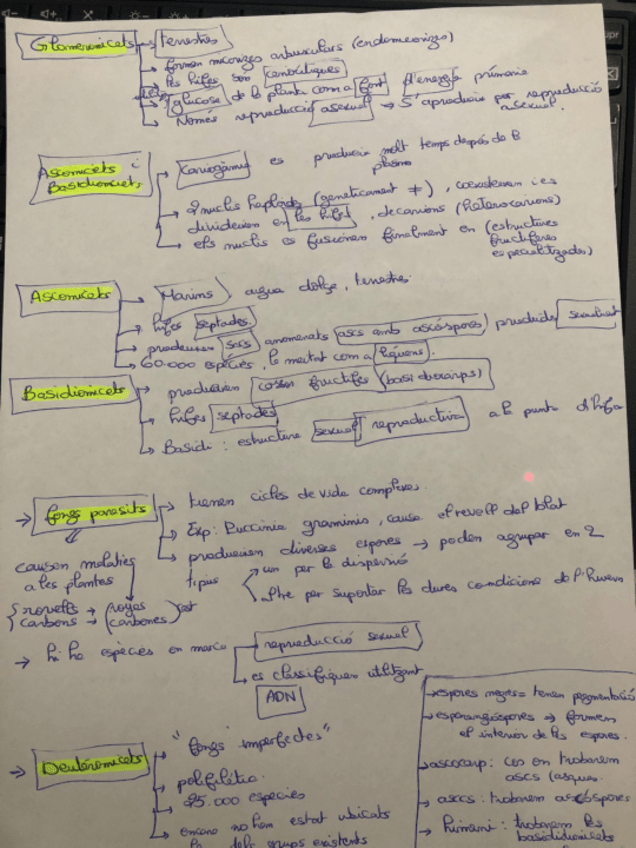 Glomeromicets → Terrestres
→ formen micorizes arbusculars (endomicorizes)
→ les hifes són cenocítiques
→ glucosa de la planta com a font d'energia primària
→ Només reproducció asexual → S'aprodueix per reproducció asexual.
Ascomicets i Basidiomicets
→ Cariogàmia es produeix molt temps després de la plasmo
→ 2 nuclis haploides (genèticament ≠), coexisteixen i es
divideixen en les hifes, dicarions (heterocarions)
→ els nuclis es fusionen finalment en (estructures
fructíferes
especialitzades)
Ascomicets → Marins, aigua dolça, terrestres
→ hifes septades
→ produeixen sacs anomenats ascs amb ascòspores produïdes sexualment
→ 60.000 espècies, la meitat com a líquens.
Basidiomicets → produeixen cossos fructífers (basidiocarps)
→ hifes septades
→ Basidi: estructura sexual reproductiva a la punta d'hifa
→ fongs paràsits → tienen cicles de vida complexes.
→ Exp: Puccinia graminis, causa el rovell del blat
→ produeixen diverses espores → poden agrupar en 2
tipus
un per la dispersió
altre per suportar les dures condicions de l'hivern
causen malaties
a les plantes
rovells → (royas
carbons → (carbones) cast
→ hi ha espècies en marxa → reproducció sexual
→ es classifiquen utilitzant
ADN
→ Deuteromicets → "fongs imperfectes"
→ polifilètic
→ 25.000 espècies
→ encara no han estat ubicats
dels grups existents
→ espores negres = tenen pigmentació
→ esporangiòspores → formen
el interior de les espores.
→ ascocarp: cos on trobarem
ascs (asques
→ ascs: trobarem ascòspores
→ himeni: trobarem les
basidiomicets